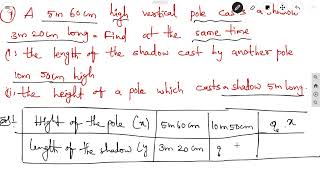 ⑦ A 5m 60cm high vertical pole casts a shadow
3m 20cm long. Find at the same time
(i) the length of the shadow cast by another pole
10m 50cm high
(ii) the height of a pole which casts a shadow 5m long.
Hight of the pole (x) 5m60cm 10m50cm x
Length of the shadow (y 3m 20cm